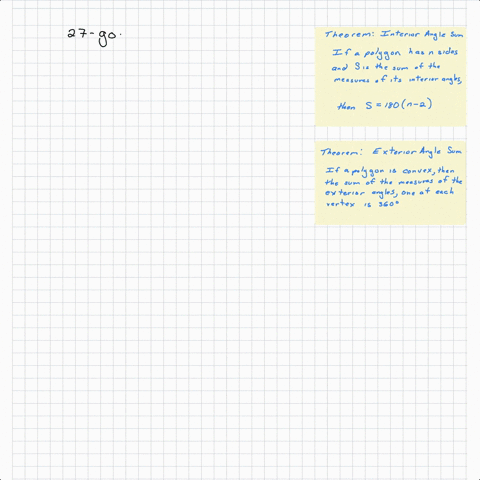 27-go.
Theorem: Interior Angle Sum
If a polygon has n sides
and S is the sum of the
measures of its interior angles,
then S = 180(n-2)
Theorem: Exterior Angle Sum
If a polygon is convex, then
the sum of the measures of the
exterior angles, one at each
vertex is 360°